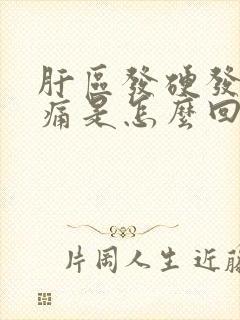 肝區發硬發
痛是怎麼回
片岡人生 近藤